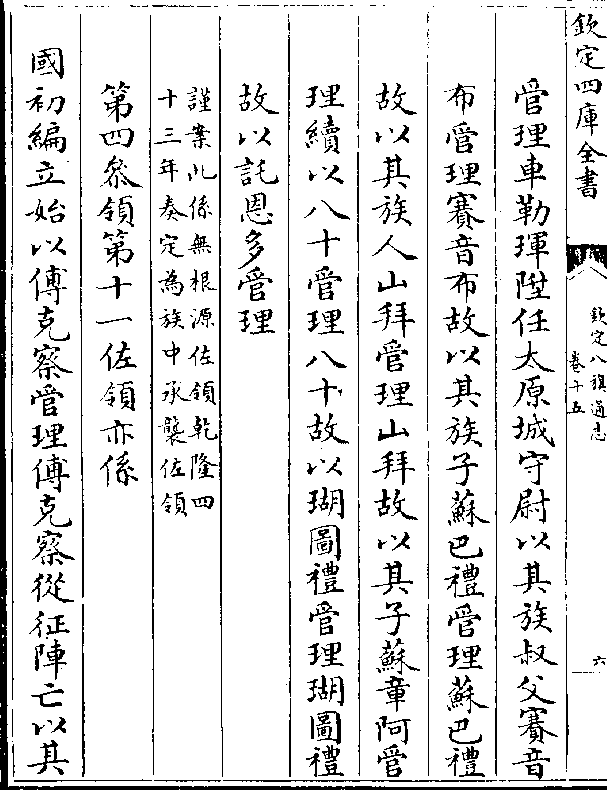 欽定四庫全書
欽定八旗通志
卷十五
六
管理車勒琿陞任太原城守尉以其族叔父賽音
布管理賽音布故以其族子蘇巴禮管理蘇巴禮
故以其族人山拜管理山拜故以其子蘇章阿管
理續以八十管理八十故以瑚圖禮管理瑚圖禮
故以託恩多管理
謹案此係無根源佐領乾隆四
十三年奏定為族中承襲佐領
第四叅領第十一佐領亦係
國初編立始以傅克察管理傅克察從征陣亡以其